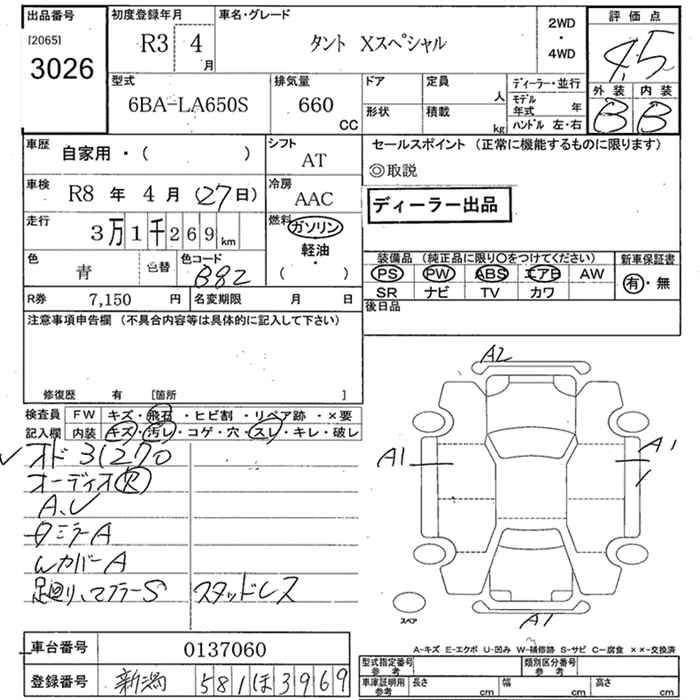 出品番号
[2065]
3026
初度登録年月
R3 4
月
車名・グレード
タント Xスペシャル
2WD
・
4WD
評価点
4.5
外装 内装
B B
型式
6BA-LA650S
排気量
660
CC
ドア
形状
定員
人
積載
kg
ディーラー・並行
モデル年式 年
ハンドル 左・右
車歴
自家用・( )
シフト
AT
車検
R8 年 4 月 (27日)
冷房
AAC
走行
3万1千269km
燃料
ガソリン
軽油
・
( )
色
青
色替
色コード
B82
R券 7,150 円
名変期限 月 日
セールスポイント (正常に機能するものに限ります)
◎取説
ディーラー出品
装備品 (純正品に限り○をつけてください)
新車保証書
PS PW ABS エアB AW
有・無
SR ナビ TV カワ
後日品
注意事項申告欄 (不具合内容等は具体的に記入して下さい)
修復歴 有 [箇所 ]
検査員
記入欄
FW キズ・飛石・ヒビ割・リペア跡・×要
内装 キズ・汚レ・コゲ・穴・スレ・キレ・破レ
オド 31270
オーディオR
A.U
ミラーA
WカバーA
足廻り、マフラーS スタッドレス
A2
A1
A1
A1
スペア
車台番号 0137060
登録番号 新潟 581ほ3969
A-キズ E-エクボ U-凹み W-補修跡 S-サビ C-腐食 ××-交換済
型式指定番号
参考
類別区分番号
参考
車庫証明用
参考
長さ cm
幅 cm
高さ cm